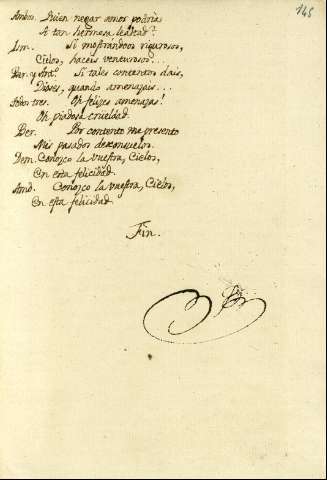 145
Ambos. Quien negar amor podria
A tan hermosa lealtad?
Ism. Si mostrandoos rigurosos,
Cielos, haceis venturosos...
Ber. y Ant.ᵒ Si tales contentos dais,
Dioses, quando amenazais...
Todos tres. Oh felizes amenazas!
Oh piadosa crüeldad.
Ber. Por contento me presento
Mis pasados desconsuelos.
Ism. Conozco la vuestra, Cielos,
En esta felicidad.
Amb. Conozco la vuestra, Cielos,
En esta felicidad.
Fin.